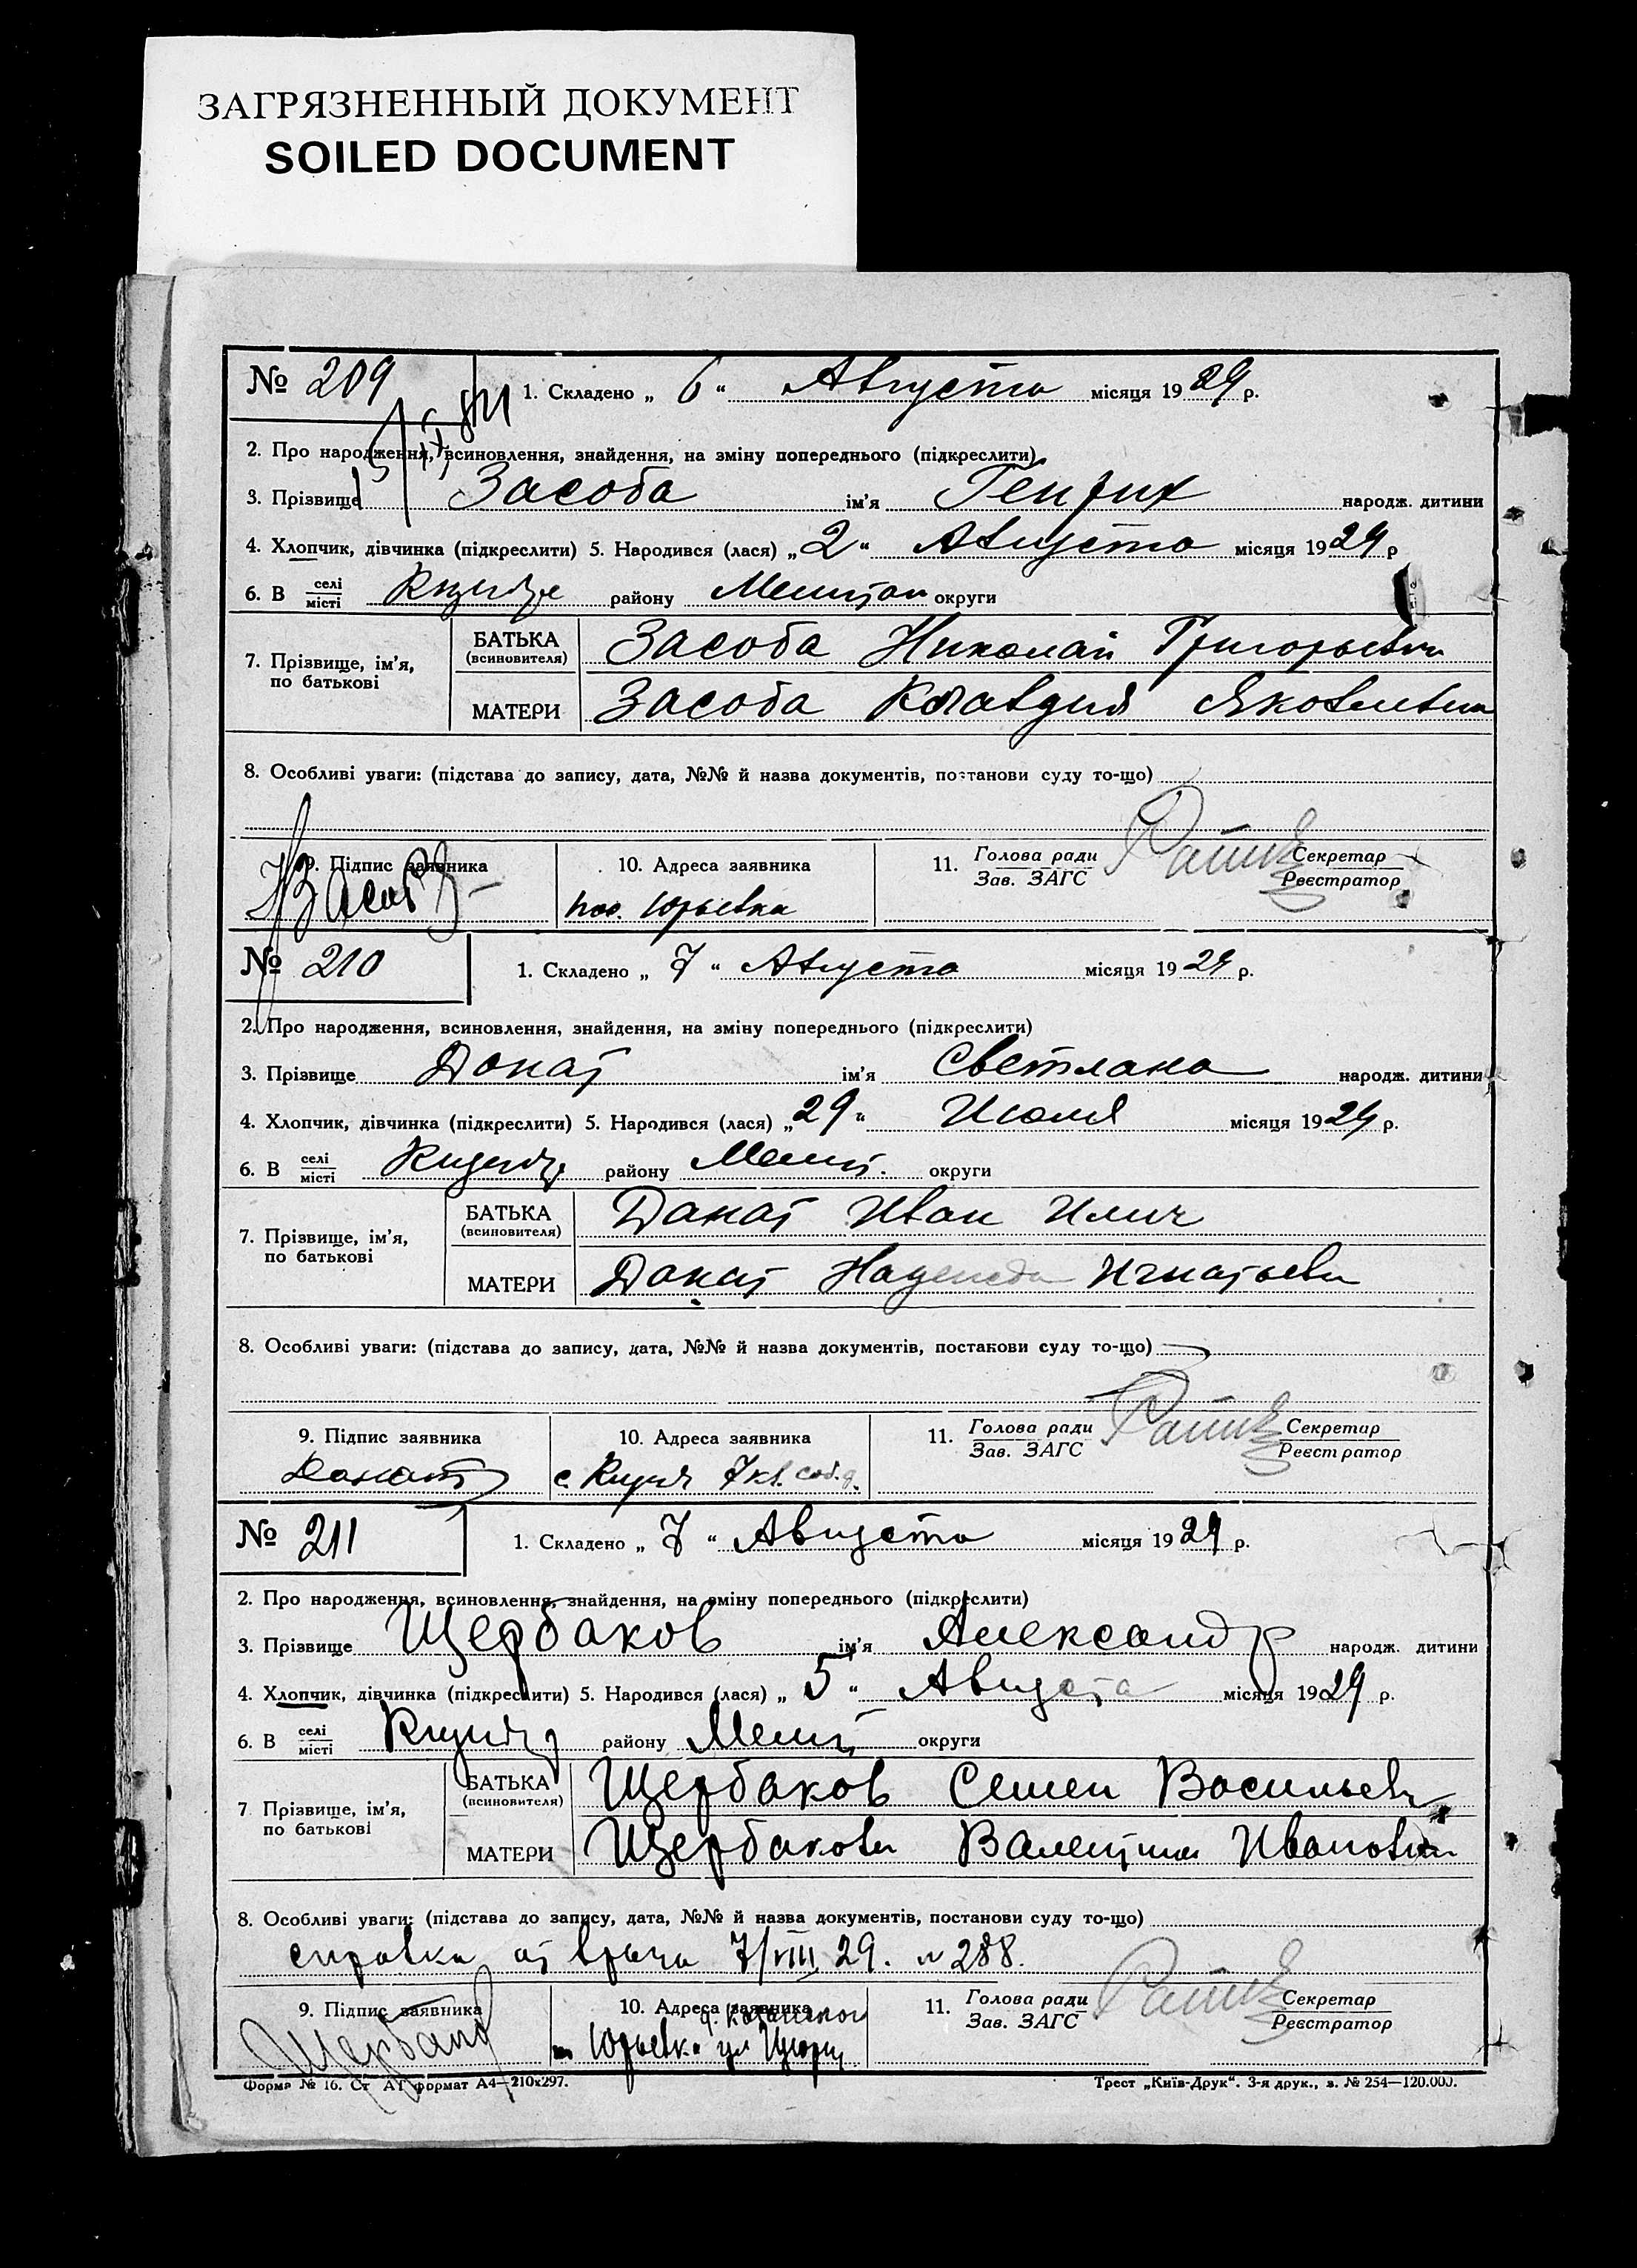 ЗАГРЯЗНЕННЫЙ ДОКУМЕНТ
SOILED DOCUMENT
№ 209
1. Складено „ 6 “ Августа місяця 1929 р.
2. Про народження, всиновлення, знайдення, на зміну попереднього (підкреслити)
3. Прізвище Засоба ім’я Генрих народж. дитини
4. Хлопчик, дівчинка (підкреслити) 5. Народився (лася) „ 2 “ Августа місяця 1929 р
6. В селі місті району округи
7. Прізвище, ім’я, по батькові
БАТЬКА (всиновителя) Засоба Николай Григорьевич
МАТЕРИ Засоба Клавдия Яковлевна
8. Особливі уваги: (підстава до запису, дата, №№ й назва документів, постанови суду то-що)
9. Підпис заявника
10. Адреса заявника
11. Голова ради Зав. ЗАГС
Секретар Реєстратор
пос. Юрьевка
№ 210
1. Складено „ 7 “ Августа місяця 1929 р.
2. Про народження, всиновлення, знайдення, на зміну попереднього (підкреслити)
3. Прізвище Донат ім’я Светлана народж. дитини
4. Хлопчик, дівчинка (підкреслити) 5. Народився (лася) „ 29 “ Июля місяця 1929 р.
6. В селі місті району округи
7. Прізвище, ім’я, по батькові
БАТЬКА (всиновителя) Донат Иван Илич
МАТЕРИ Донат Надежда Игнатьевн
8. Особливі уваги: (підстава до запису, дата, №№ й назва документів, постанови суду то-що)
9. Підпис заявника
10. Адреса заявника
11. Голова ради Зав. ЗАГС
Секретар Реєстратор
Донат
№ 211
1. Складено „ 7 “ Августа місяця 1929 р.
2. Про народження, всиновлення, знайдення, на зміну попереднього (підкреслити)
3. Прізвище Щербаков ім’я Александр народж. дитини
4. Хлопчик, дівчинка (підкреслити) 5. Народився (лася) „ 5 “ Августа місяця 1929 р.
6. В селі місті району округи
7 Прізвище, ім’я, по батькові
БАТЬКА (всиновителя) Щербаков Семен Васильев
МАТЕРИ Щербакова Валентина Ивановн
8. Особливі уваги: (підстава до запису, дата, №№ й назва документів, постанови суду то-що)
справка от врача 7/VIII 29. № 288.
9. Підпис заявника
10. Адреса заявника
11. Голова ради Зав. ЗАГС
Секретар Реєстратор
Щербаков
Юрьевка ул
Форма № 16. Ст А1 формат А4—210х297.
Трест „Київ-Друк“. 3-я друк., з. № 254—120.000.